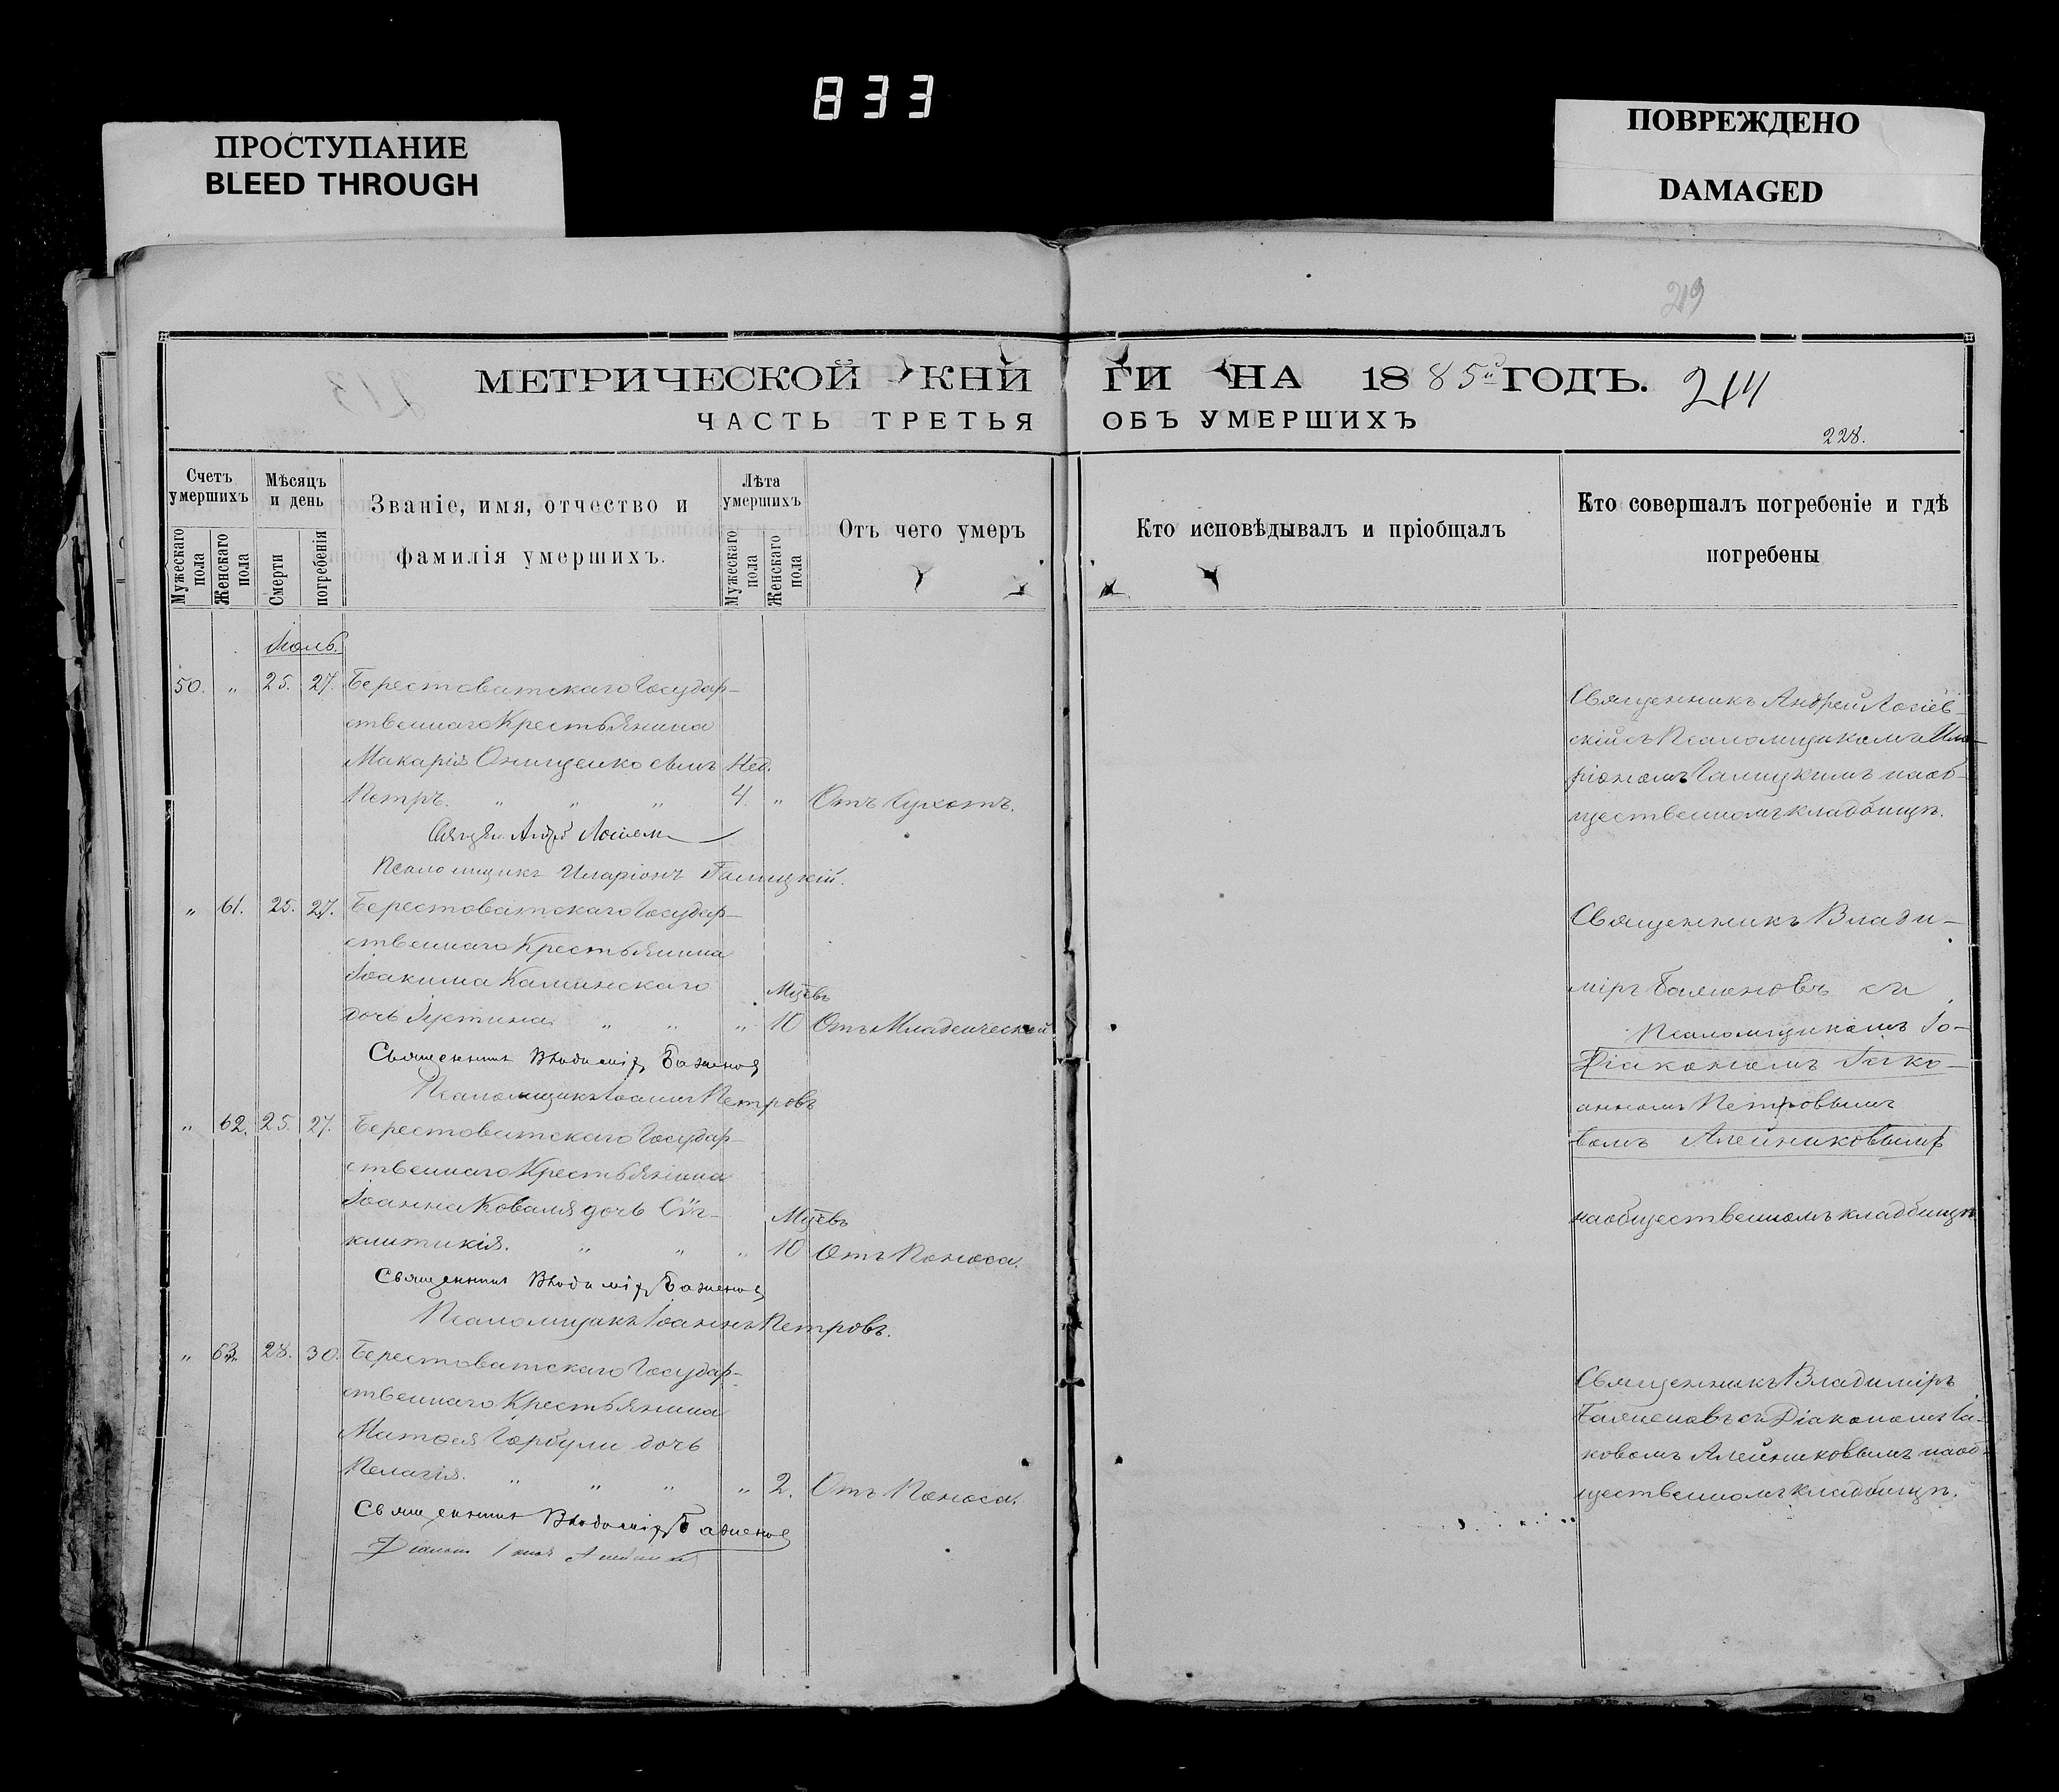 833
ПРОСТУПАНИЕ
BLEED THROUGH
ПОВРЕЖДЕНО
DAMAGED
219
МЕТРИЧЕСКОЙ КНИГИ НА 1885й ГОДЪ. 214
ЧАСТЬ ТРЕТЬЯ ОБЪ УМЕРШИХЪ
228.
Счетъ умершихъ
Мужескаго пола
Женскаго пола
Мѣсяцъ и день
Смерти
погребенія
Званіе, имя, отчество и
фамилія умершихъ.
Лѣта умершихъ
Мужескаго пола
Женскаго пола
Отъ чего умеръ
Кто исповѣдывалъ и пріобщалъ
Кто совершалъ погребеніе и гдѣ
погребены
Іюль.
50. " 25. 27. Берестоватскаго Государ-
ственнаго Крестьянина
Макарія Онищенко сынъ Нед.
Петръ. " " " 4. " Отъ Сухотъ.
Андрей
Псаломщикъ Иларіонъ Галицкій.
Священникъ Андрей
скій съ Псаломщикомъ Ила-
ріономъ Галицкимъ на об-
щественномъ кладбищѣ.
" 61. 25. 27. Берестоватскаго Государ-
ственнаго Крестьянина
Іоакима Каминскаго Мцевъ
дочь Іустина. " " " 10 Отъ Младенческой
Священникъ Владиміръ Баженов
Псаломщикъ Іоаннъ Петровъ
Священникъ Влади-
міръ Баженовъ съ
Псаломщикомъ Іо-
Діакономъ Іако-
анномъ Петровымъ
вомъ Алейниковымъ
на общественномъ кладбищѣ
" 62. 25. 27. Берестоватскаго Государ-
ственнаго Крестьянина
Іоанна Коваля дочь Сүг- Мцевъ
клитикія. " " " 10 Отъ Поноса.
Священникъ Владиміръ Баженов
Псаломщикъ Іоаннъ Петровъ.
" 63. 28. 30. Берестоватскаго Государ-
ственнаго Крестьянина
Матѳея Горбули дочь
Пелагія. " " " " 2. Отъ Поноса.
Священникъ Владиміръ Баженов
Діаконъ Іаковъ Алейников
Священникъ Владиміръ
Баженовъ съ Діакономъ Іа-
ковомъ Алейниковымъ на об-
щественномъ кладбищѣ.